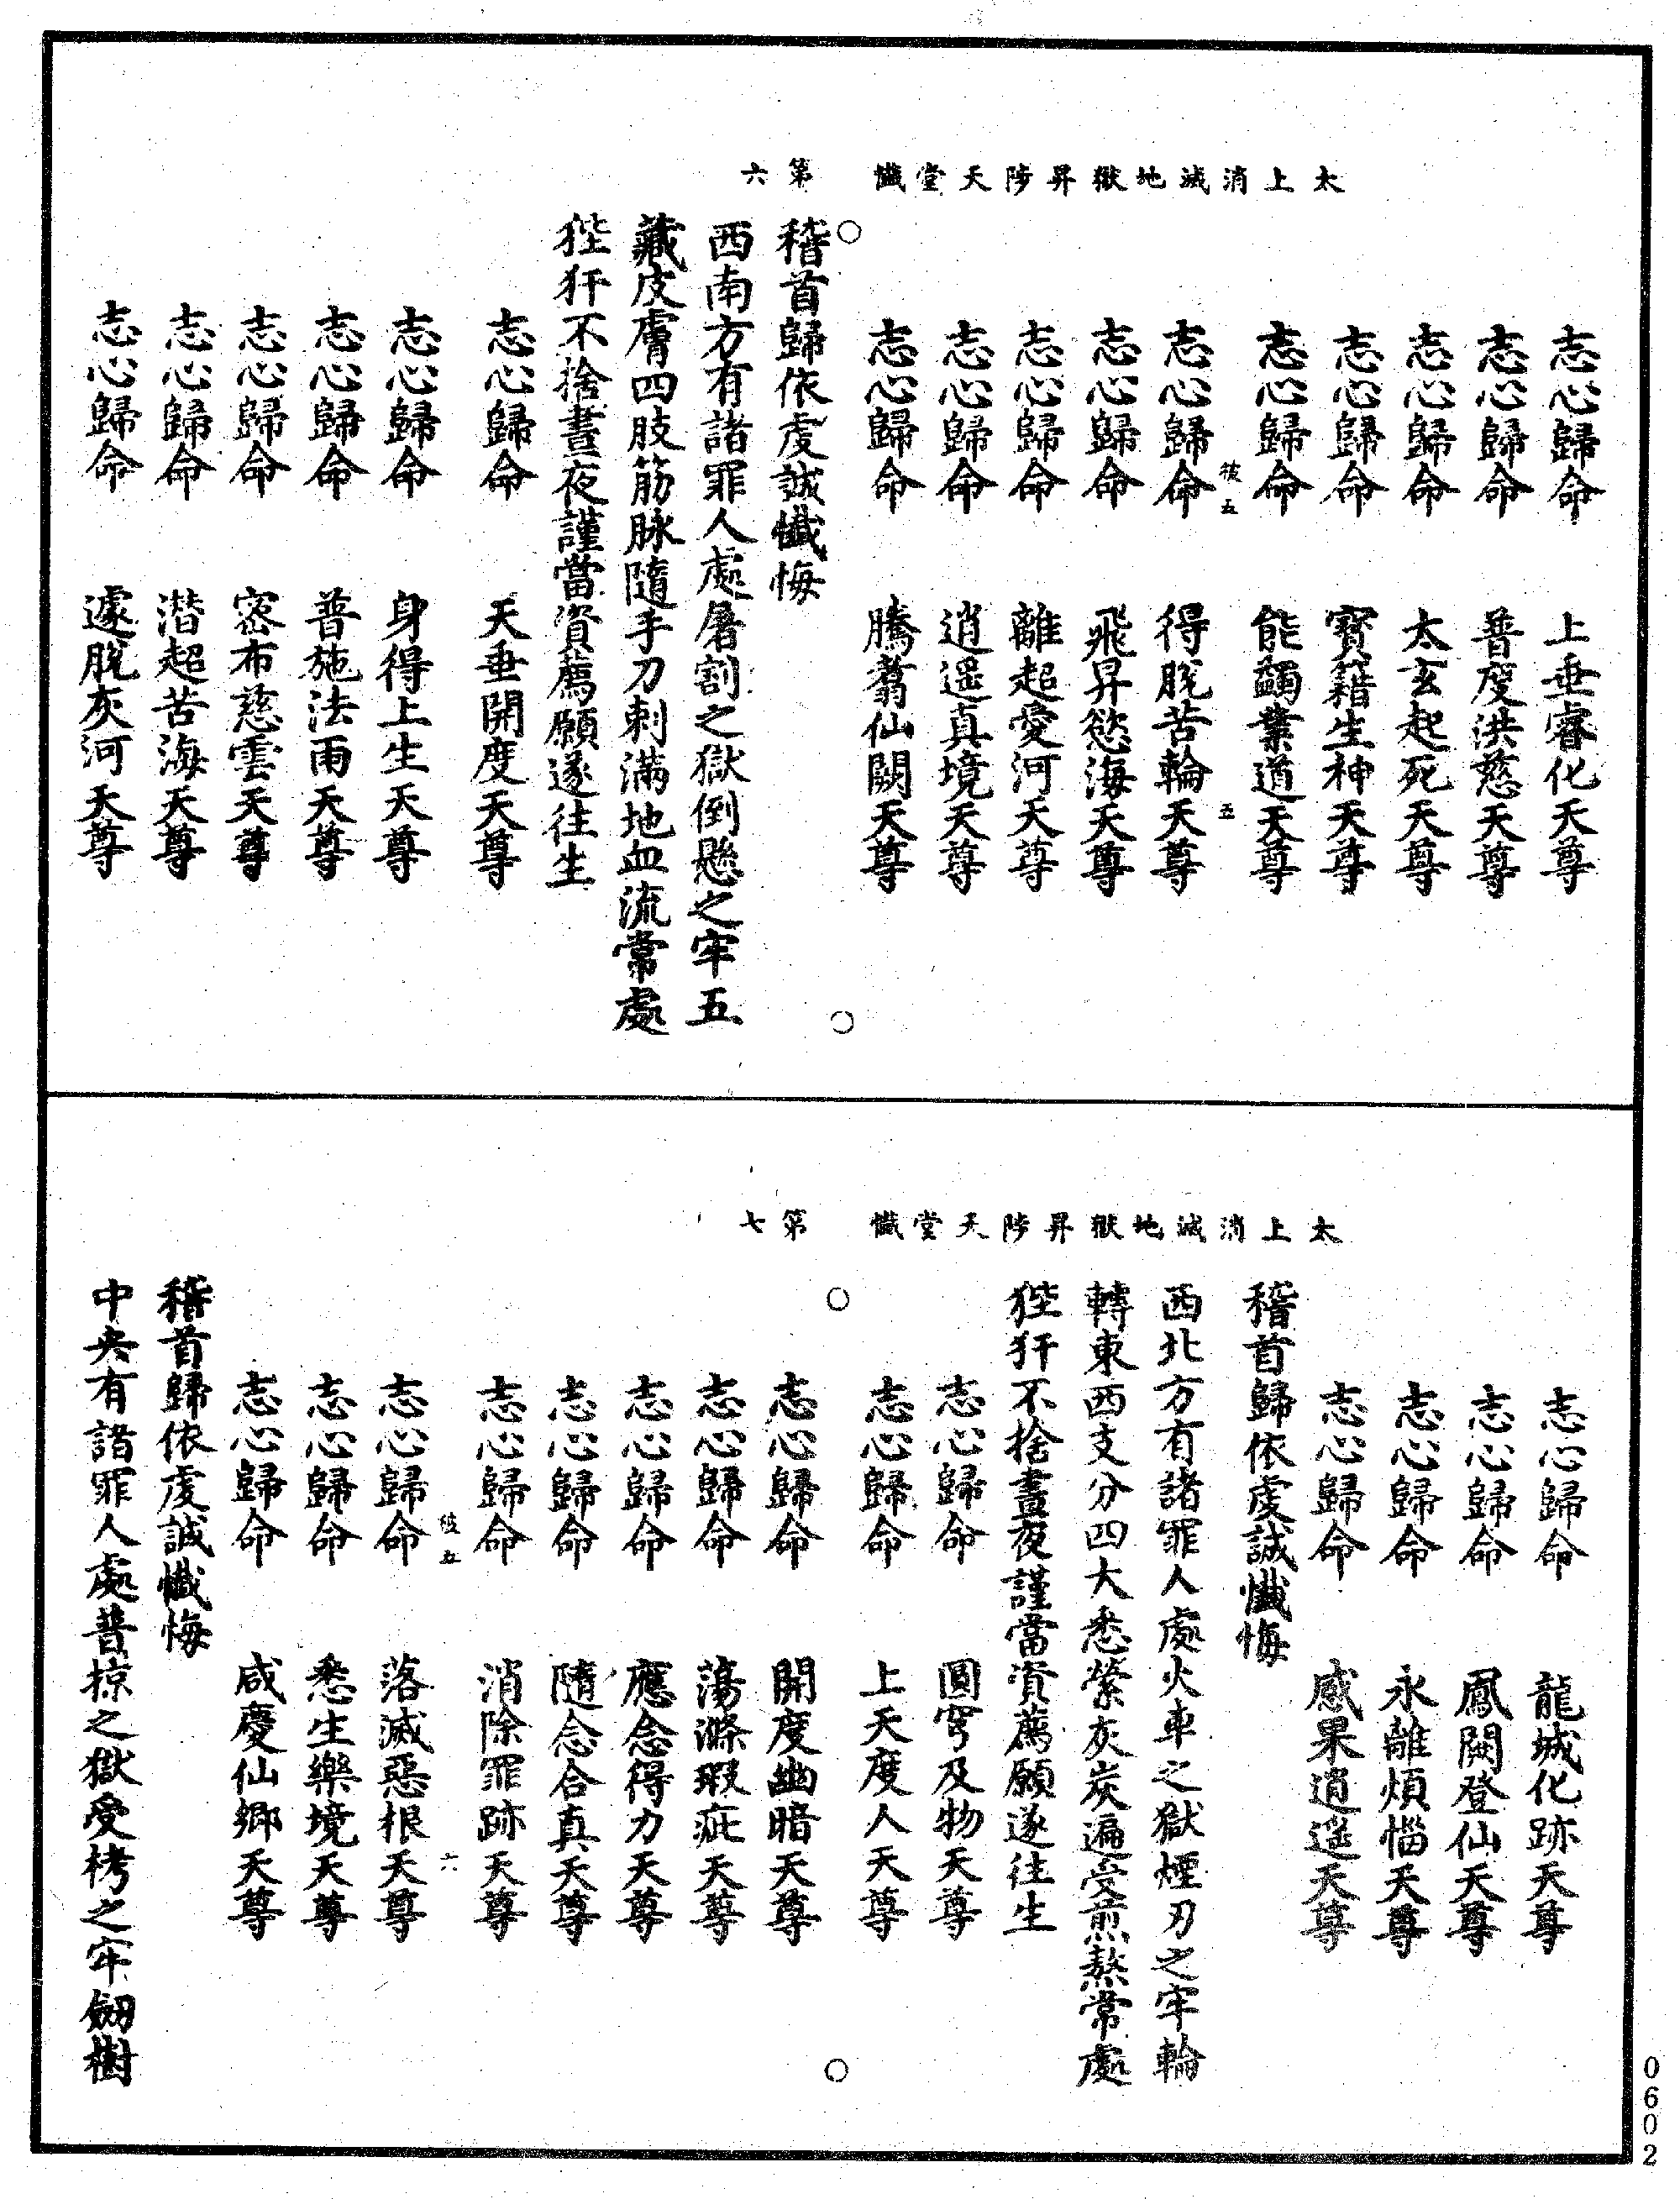 太上消滅地獄昇陟天堂懺　第六
志心歸命　上垂睿化天尊
志心歸命　普度洪慈天尊
志心歸命　太玄起死天尊
志心歸命　寶籍生神天尊
志心歸命　能蠲業道天尊
彼五　五
志心歸命　得脫苦輪天尊
志心歸命　飛昇慾海天尊
志心歸命　離超愛河天尊
志心歸命　逍遥真境天尊
志心歸命　騰翥仙闕天尊
稽首歸依虔誠懺悔
西南方有諸罪人處屠割之獄倒懸之牢五
藏皮膚四肢筋脉隨手刀刺滿地血流常處
狴犴不捨晝夜謹當資薦願遂往生
志心歸命　天垂開度天尊
志心歸命　身得上生天尊
志心歸命　普施法雨天尊
志心歸命　密布慈雲天尊
志心歸命　潛超苦海天尊
志心歸命　遽脫灰河天尊
太上消滅地獄昇陟天堂懺　第七
志心歸命　龍城化跡天尊
志心歸命　鳳闕登仙天尊
志心歸命　永離煩惱天尊
志心歸命　感果逍遥天尊
稽首歸依虔誠懺悔
西北方有諸罪人處火車之獄煙刃之牢輪
轉東西支分四大悉縈灰炭遍受煎熬常處
狴犴不捨晝夜謹當資薦願遂往生
志心歸命　圓穹及物天尊
志心歸命　上天度人天尊
志心歸命　開度幽暗天尊
志心歸命　蕩滌瑕疵天尊
志心歸命　應念得力天尊
志心歸命　隨念合真天尊
志心歸命　消除罪跡天尊
彼五　六
志心歸命　落滅惡根天尊
志心歸命　悉生樂境天尊
志心歸命　咸慶仙鄉天尊
稽首歸依虔誠懺悔
中央有諸罪人處普掠之獄受栲之牢劒樹
0602